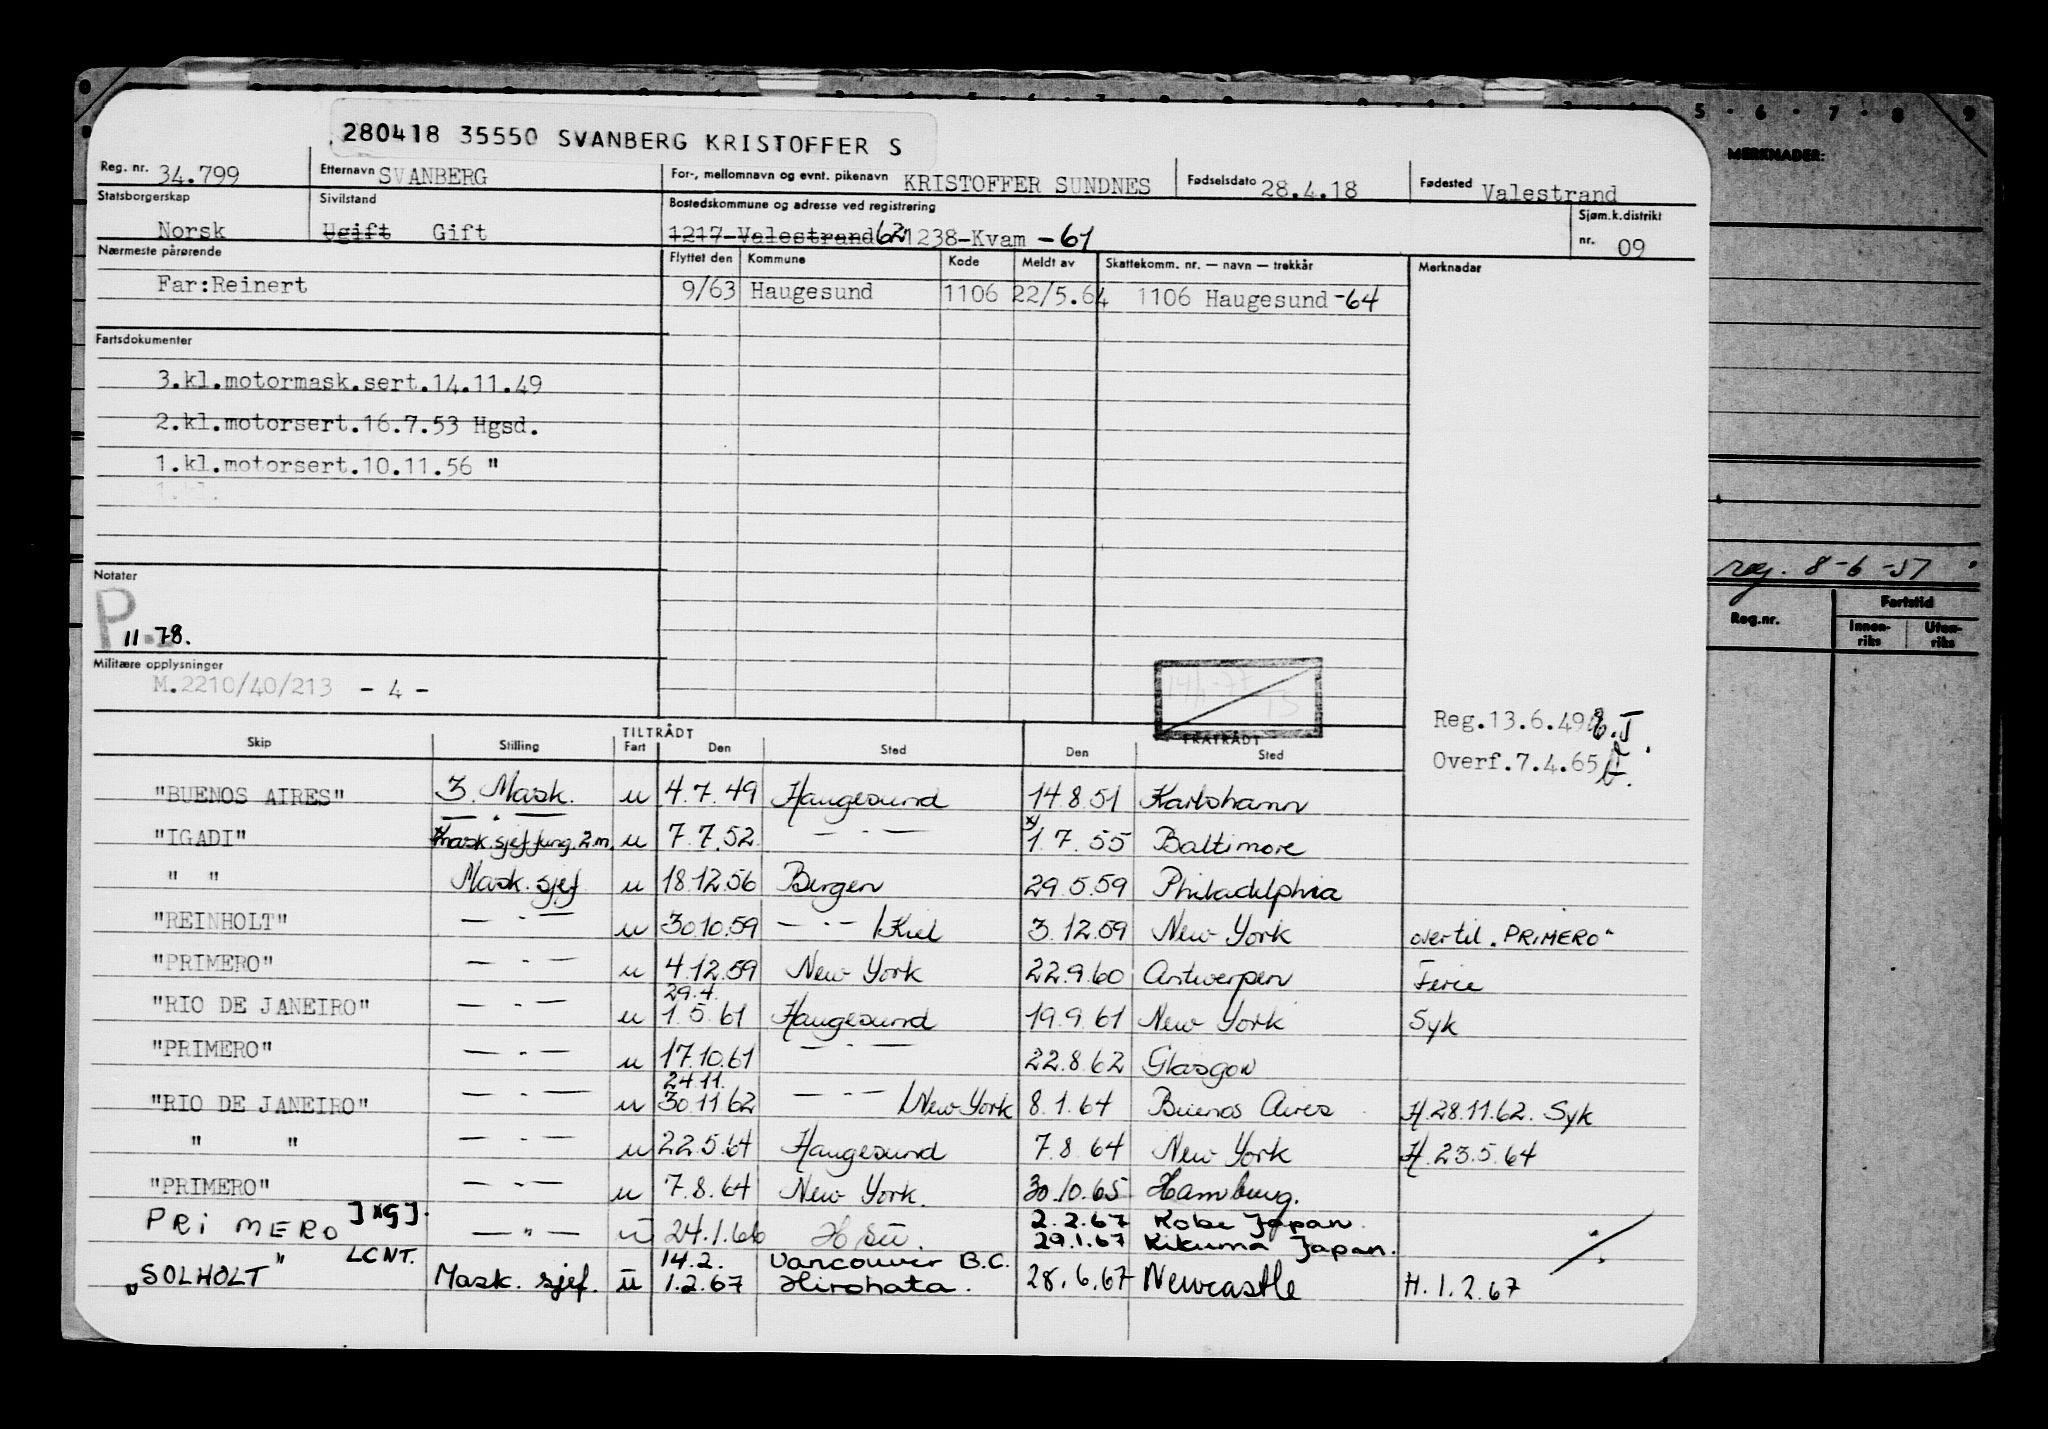 280418 35550 SVANBERG KRISTOFFER S
5 · 6 · 7 · 8 9
MERKNADER:
Reg. nr. 34.799 Etternavn SVANBERG For-, mellomnavn og evnt. pikenavn KRISTOFFER SUNDNES Fødselsdato 28.4.18 Fødested Valestrand
Statsborgerskap Norsk Sivilstand Ugift Gift Bostedskommune og adresse ved registrering 1217-Valestrand 62 1238-Kvam -61 Sjøm.k.distrikt nr. 09
Nærmeste pårørende Flyttet den Kommune Kode Meldt av Skattekomm. nr. — navn — trekkår Merknader
Far:Reinert 9/63 Haugesund 1106 22/5.64 1106 Haugesund -64
Fartsdokumenter
3.kl.motormask.sert.14.11.49
2.kl.motorsert.16.7.53 Hgsd.
1.kl.motorsert.10.11.56 "
1.kl.
Notater
P
11.78.
reg. 8-6-57
Reg.nr. Fartstid
Innen-riks Uten-riks
Militære opplysninger
M.2210/40/213 - 4 -
Reg.13.6.49
Overf.7.4.65
TILTRÅDT FRATRÅDT
Skip Stilling Fart Den Sted Den Sted
"BUENOS AIRES" 3. Mask. u 4.7.49 Haugesund 14.8.51 Karlshamn
"IGADI" — " — x) mask.sjef fung. 2 m. u 7.7.52 — " — x) 1.7.55 Baltimore
" " Mask. sjef u 18.12.56 Bergen 29.5.59 Philadelphia
"REINHOLT" — " — u 30.10.59 — " — / Kiel 3.12.59 New York over til "PRIMERO"
"PRIMERO" — " — u 4.12.59 New York 22.9.60 Antwerpen Ferie
29.4.
"RIO DE JANEIRO" — " — u 1.5.61 Haugesund 19.9.61 New York Syk
"PRIMERO" — " — u 17.10.61 — " — 22.8.62 Glasgow
24.11.
"RIO DE JANEIRO" — " — u 30.11.62 — " — / New York 8.1.64 Buenos Aires H.28.11.62. Syk
" " — " — u 22.5.64 Haugesund 7.8.64 New York H.23.5.64
"PRIMERO" — " — u 7.8.64 New York. 30.10.65 Hamburg.
2.2.67 Kobe Japan.
PRIMERO JXGJ. — " — u 24.1.66 29.1.67 Kikuma Japan.
LCNT. 14.2. Vancouver B.C.
"SOLHOLT" Mask. sjef. u 1.2.67 Hirohata. 28.6.67 Newcastle H.1.2.67